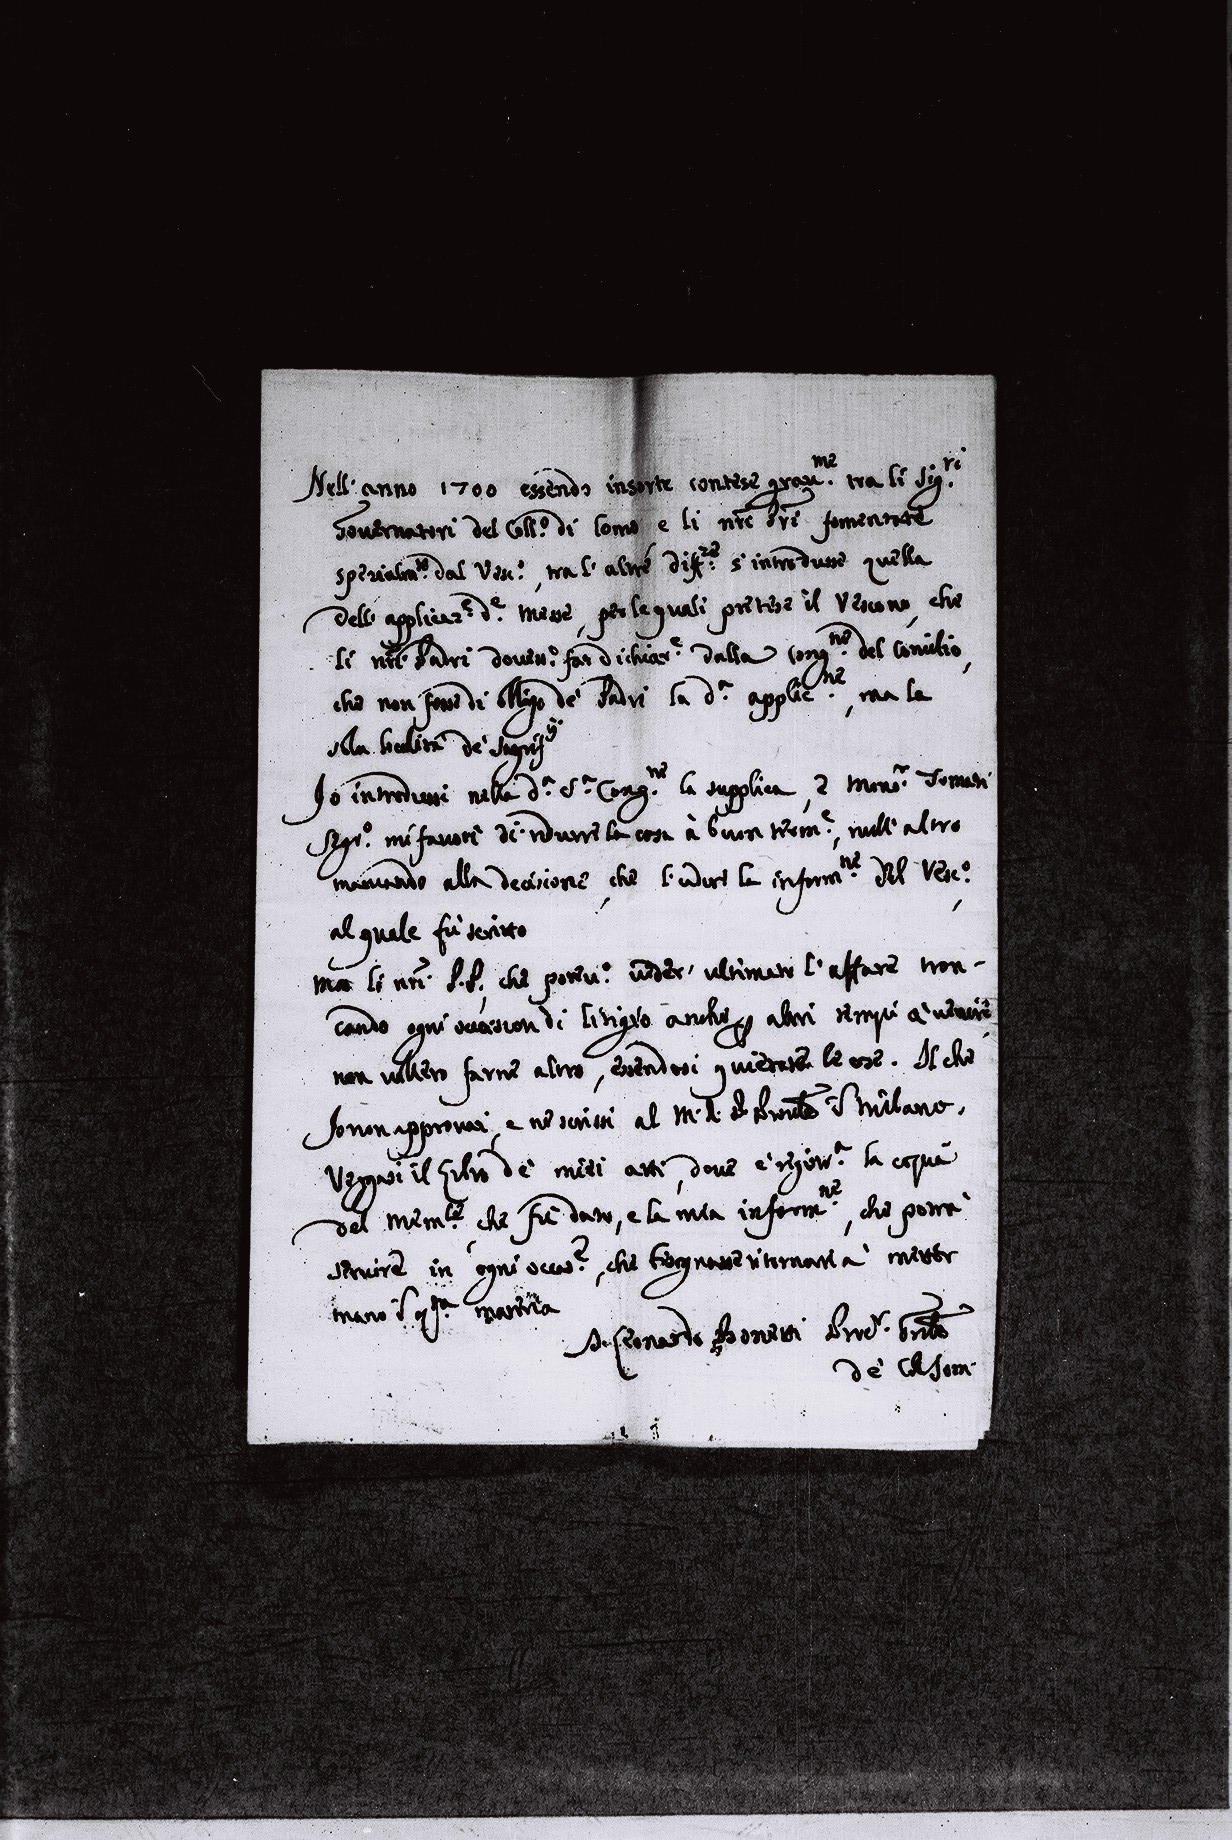 Nell' anno 1700 essendo insorte contese grau.me tra li Sig.ri
Gouernatori del Coll.o di Como e li nrĩ Pri fomentate
spezialm.te dal Vesc.o, tra l' altre diff.ze s' introdusse quella
dell' applicaz.e d.e Messe, per le quali pretese il Vescouo, che
li nrĩ Padri douess.o far dichiar.e dalla Cong.ne del Concilio,
che non fosse di obligo de' Padri la d.a applic.ne, ma la
sola de'
Io introdussi nella d.a S.a Cong.ne la supplica, e Mons.r Tomati
Segr.o mi fauorì di ridurre la cosa à buon term.e, null' altro
mancando alla decisione, che l' udire la inform.ne del Vesc.o,
al quale fù scritto
Ma li nrĩ P.P., che poteu.o ueder' ultimato l' affare tron-
cando ogni occasion di litigio anche p altri tempi à uenire,
non uollero farne altro, essendosi quietate le cose. Il che
Io non approuai, e ne scrissi al M.R. P. Proũle d Milano.
Veggasi il Libro de' miei atti, doue è registr.a la copia
del Mem.le, che fù dato, e la mia inform.ne, che potrà
seruire in ogni occas.e, che bisognasse ritornare à metter
mano ĩ q.sta materia
D. Leonardo Bonetti Proc.r Gñle
de' Col. Som.